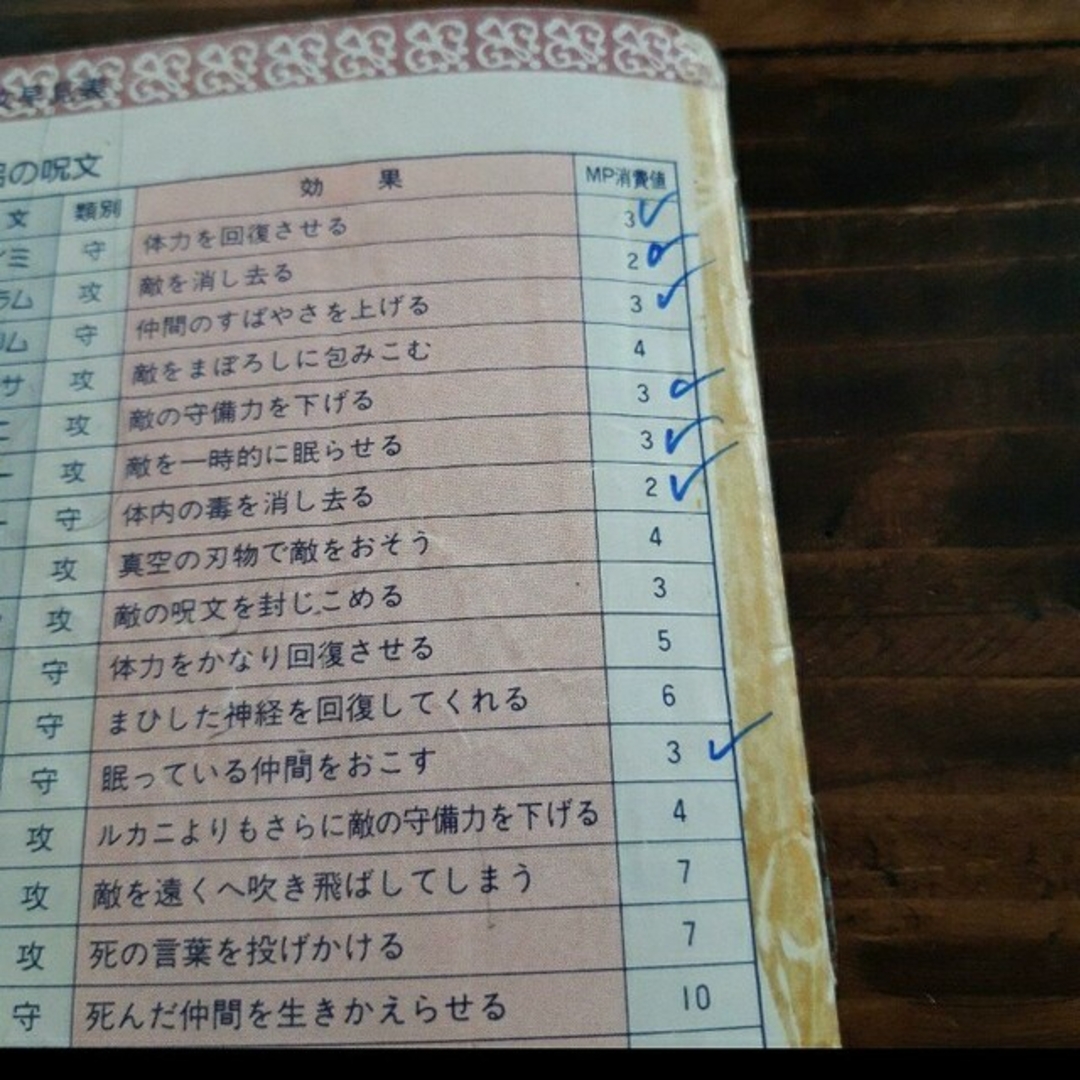 早見表
の呪文
文 類別 効果 MP消費値
ミ 守 体力を回復させる 3
ラム 攻 敵を消し去る 2
ム 守 仲間のすばやさを上げる 3
サ 攻 敵をまぼろしに包みこむ 4
攻 敵の守備力を下げる 3
ー 攻 敵を一時的に眠らせる 3
ー 守 体内の毒を消し去る 2
攻 真空の刃物で敵をおそう 4
攻 敵の呪文を封じこめる 3
守 体力をかなり回復させる 5
守 まひした神経を回復してくれる 6
守 眠っている仲間をおこす 3
攻 ルカニよりもさらに敵の守備力を下げる 4
攻 敵を遠くへ吹き飛ばしてしまう 7
攻 死の言葉を投げかける 7
守 死んだ仲間を生きかえらせる 10